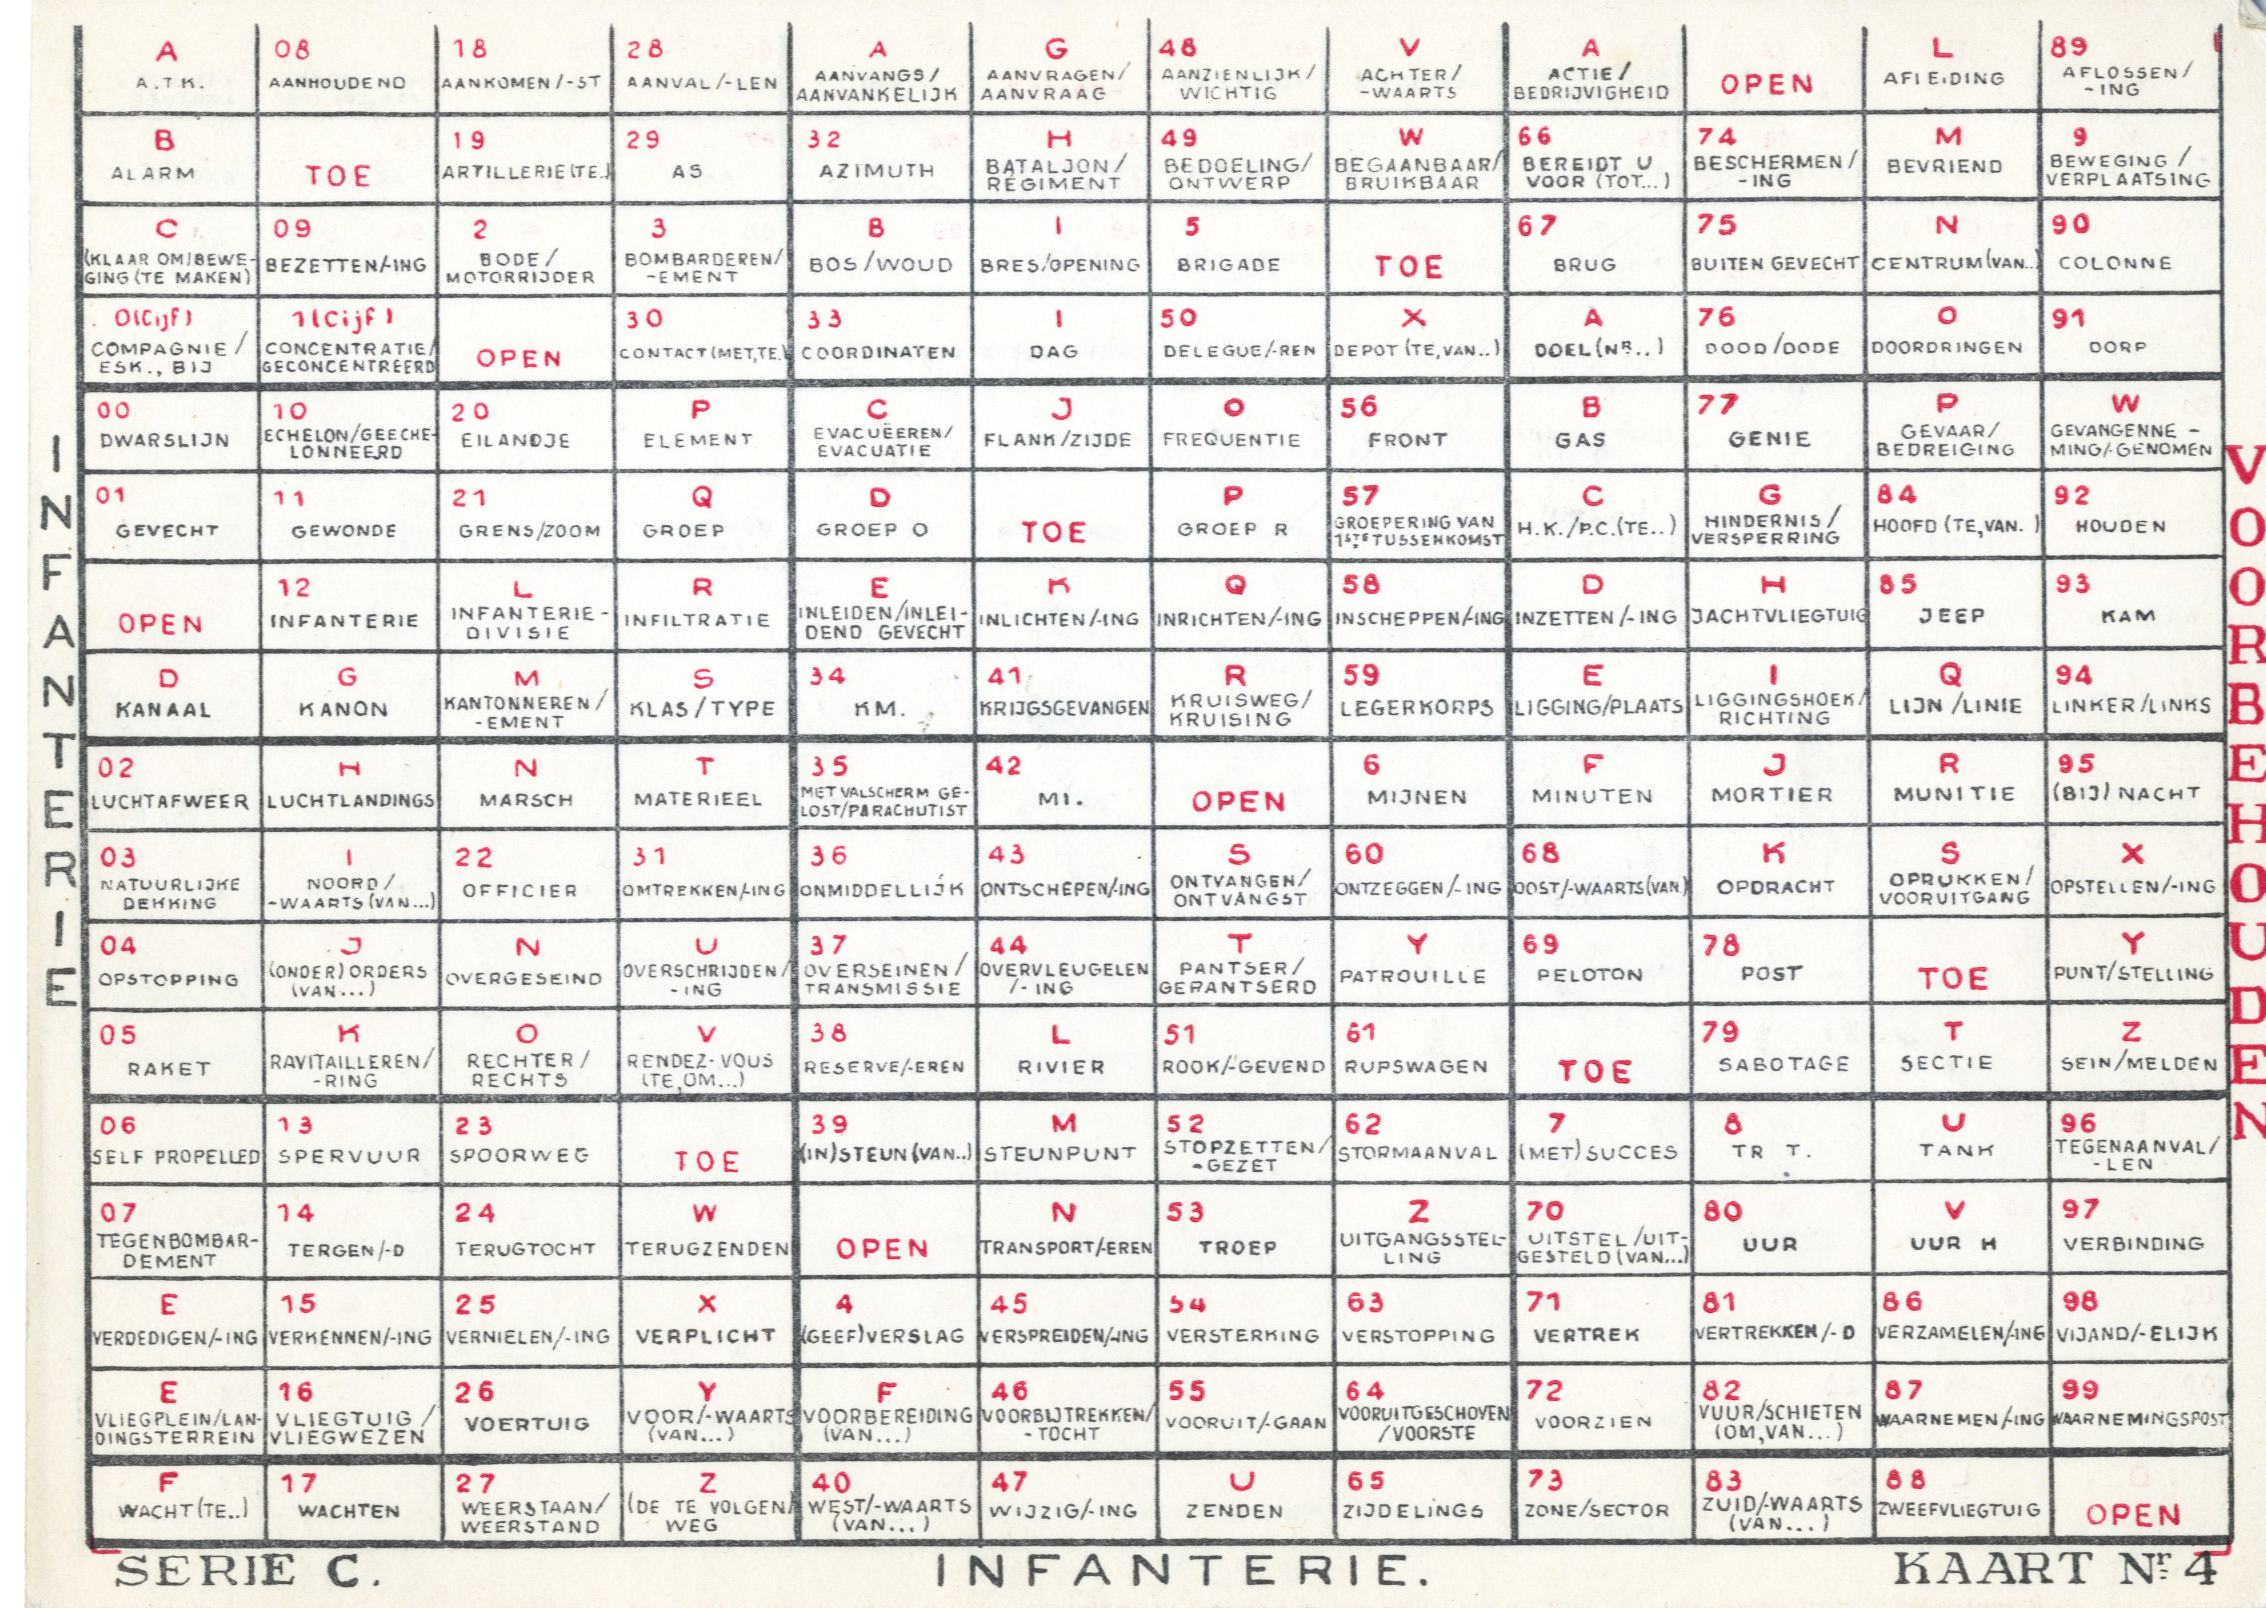 A
A.T.K.
08
AANHOUDEND
18
AANKOMEN/-ST
28
AANVAL/-LEN
A
AANVANGS/
AANVANKELIJK
G
AANVRAGEN/
AANVRAAG
48
AANZIENLIJK/
WICHTIG
V
ACHTER/
-WAARTS
A
ACTIE/
BEDRIJVIGHEID
OPEN
L
AFLEIDING
89
AFLOSSEN/
-ING
B
ALARM
TOE
19
ARTILLERIE(TE.)
29
AS
32
AZIMUTH
H
BATALJON/
REGIMENT
49
BEDOELING/
ONTWERP
W
BEGAANBAAR/
BRUIKBAAR
66
BEREIDT U
VOOR (TOT...)
74
BESCHERMEN/
-ING
M
BEVRIEND
9
BEWEGING/
VERPLAATSING
C
(KLAAR OM)BEWE-
GING (TE MAKEN)
09
BEZETTEN/-ING
2
BODE/
MOTORRIJDER
3
BOMBARDEREN/
-EMENT
B
BOS/WOUD
I
BRES/OPENING
5
BRIGADE
TOE
67
BRUG
75
BUITEN GEVECHT
N
CENTRUM(VAN..)
90
COLONNE
0(Cijf)
COMPAGNIE/
ESK., BIJ
1(Cijf)
CONCENTRATIE/
GECONCENTREERD
OPEN
30
CONTACT(MET,TE.)
33
COORDINATEN
I
DAG
50
DELEGUE/-REN
X
DEPOT (TE,VAN..)
A
DOEL(NR..)
76
DOOD/DODE
O
DOORDRINGEN
91
DORP
00
DWARSLIJN
10
ECHELON/GEECHE-
LONNEERD
20
EILANDJE
P
ELEMENT
C
EVACUËEREN/
EVACUATIE
J
FLANK/ZIJDE
O
FREQUENTIE
56
FRONT
B
GAS
77
GENIE
P
GEVAAR/
BEDREIGING
W
GEVANGENNE-
MING/-GENOMEN
01
GEVECHT
11
GEWONDE
21
GRENS/ZOOM
Q
GROEP
D
GROEP O
TOE
P
GROEP R
57
GROEPERING VAN
1STE TUSSENKOMST
C
H.K./P.C.(TE..)
G
HINDERNIS/
VERSPERRING
84
HOOFD (TE,VAN.)
92
HOUDEN
OPEN
12
INFANTERIE
L
INFANTERIE-
DIVISIE
R
INFILTRATIE
E
INLEIDEN/INLEI-
DEND GEVECHT
K
INLICHTEN/-ING
Q
INRICHTEN/-ING
58
INSCHEPPEN/-ING
D
INZETTEN/-ING
H
JACHTVLIEGTUIG
85
JEEP
93
KAM
D
KANAAL
G
KANON
M
KANTONNEREN/
-EMENT
S
KLAS/TYPE
34
KM.
41
KRIJGSGEVANGEN
R
KRUISWEG/
KRUISING
59
LEGERKORPS
E
LIGGING/PLAATS
I
LIGGINGSHOEK/
RICHTING
Q
LIJN/LINIE
94
LINKER/LINKS
02
LUCHTAFWEER
H
LUCHTLANDINGS
N
MARSCH
T
MATERIEEL
35
MET VALSCHERM GE-
LOST/PARACHUTIST
42
MI.
OPEN
6
MIJNEN
F
MINUTEN
J
MORTIER
R
MUNITIE
95
(BIJ) NACHT
03
NATUURLIJKE
DEKKING
I
NOORD/
-WAARTS(VAN...)
22
OFFICIER
31
OMTREKKEN/-ING
36
ONMIDDELLIJK
43
ONTSCHEPEN/-ING
S
ONTVANGEN/
ONTVANGST
60
ONTZEGGEN/-ING
68
OOST/-WAARTS(VAN)
K
OPDRACHT
S
OPRUKKEN/
VOORUITGANG
X
OPSTELLEN/-ING
04
OPSTOPPING
J
(ONDER) ORDERS
(VAN...)
N
OVERGESEIND
U
OVERSCHRIJDEN/
-ING
37
OVERSEINEN/
TRANSMISSIE
44
OVERVLEUGELEN
/-ING
T
PANTSER/
GEPANTSERD
Y
PATROUILLE
69
PELOTON
78
POST
TOE
Y
PUNT/STELLING
05
RAKET
K
RAVITAILLEREN/
-RING
O
RECHTER/
RECHTS
V
RENDEZ-VOUS
(TE,OM...)
38
RESERVE/-EREN
L
RIVIER
51
ROOK/-GEVEND
61
RUPSWAGEN
TOE
79
SABOTAGE
T
SECTIE
Z
SEIN/MELDEN
06
SELF PROPELLED
13
SPERVUUR
23
SPOORWEG
TOE
39
(IN)STEUN(VAN..)
M
STEUNPUNT
52
STOPZETTEN/
-GEZET
62
STORMAANVAL
7
(MET) SUCCES
8
TR T.
U
TANK
96
TEGENAANVAL/
-LEN
07
TEGENBOMBAR-
DEMENT
14
TERGEN/-D
24
TERUGTOCHT
W
TERUGZENDEN
OPEN
N
TRANSPORT/-EREN
53
TROEP
Z
UITGANGSSTEL-
LING
70
UITSTEL/UIT-
GESTELD(VAN...)
80
UUR
V
UUR H
97
VERBINDING
E
VERDEDIGEN/-ING
15
VERKENNEN/-ING
25
VERNIELEN/-ING
X
VERPLICHT
4
(GEEF)VERSLAG
45
VERSPREIDEN/-ING
54
VERSTERKING
63
VERSTOPPING
71
VERTREK
81
VERTREKKEN/-D
86
VERZAMELEN/-ING
98
VIJAND/-ELIJK
E
VLIEGPLEIN/LAN-
DINGSTERREIN
16
VLIEGTUIG/
VLIEGWEZEN
26
VOERTUIG
Y
VOOR/-WAARTS
(VAN...)
F
VOORBEREIDING
(VAN...)
46
VOORBIJTREKKEN/
-TOCHT
55
VOORUIT/-GAAN
64
VOORUITGESCHOVEN
/VOORSTE
72
VOORZIEN
82
VUUR/SCHIETEN
(OM,VAN...)
87
WAARNEMEN/-ING
99
WAARNEMINGSPOST
F
WACHT(TE..)
17
WACHTEN
27
WEERSTAAN/
WEERSTAND
Z
(DE TE VOLGEN)
WEG
40
WEST/-WAARTS
(VAN...)
47
WIJZIG/-ING
U
ZENDEN
65
ZIJDELINGS
73
ZONE/SECTOR
83
ZUID/-WAARTS
(VAN...)
88
ZWEEFVLIEGTUIG
OPEN
INFANTERIE
VOORBEHOUDEN
SERIE C.
INFANTERIE.
KAART Nr. 4